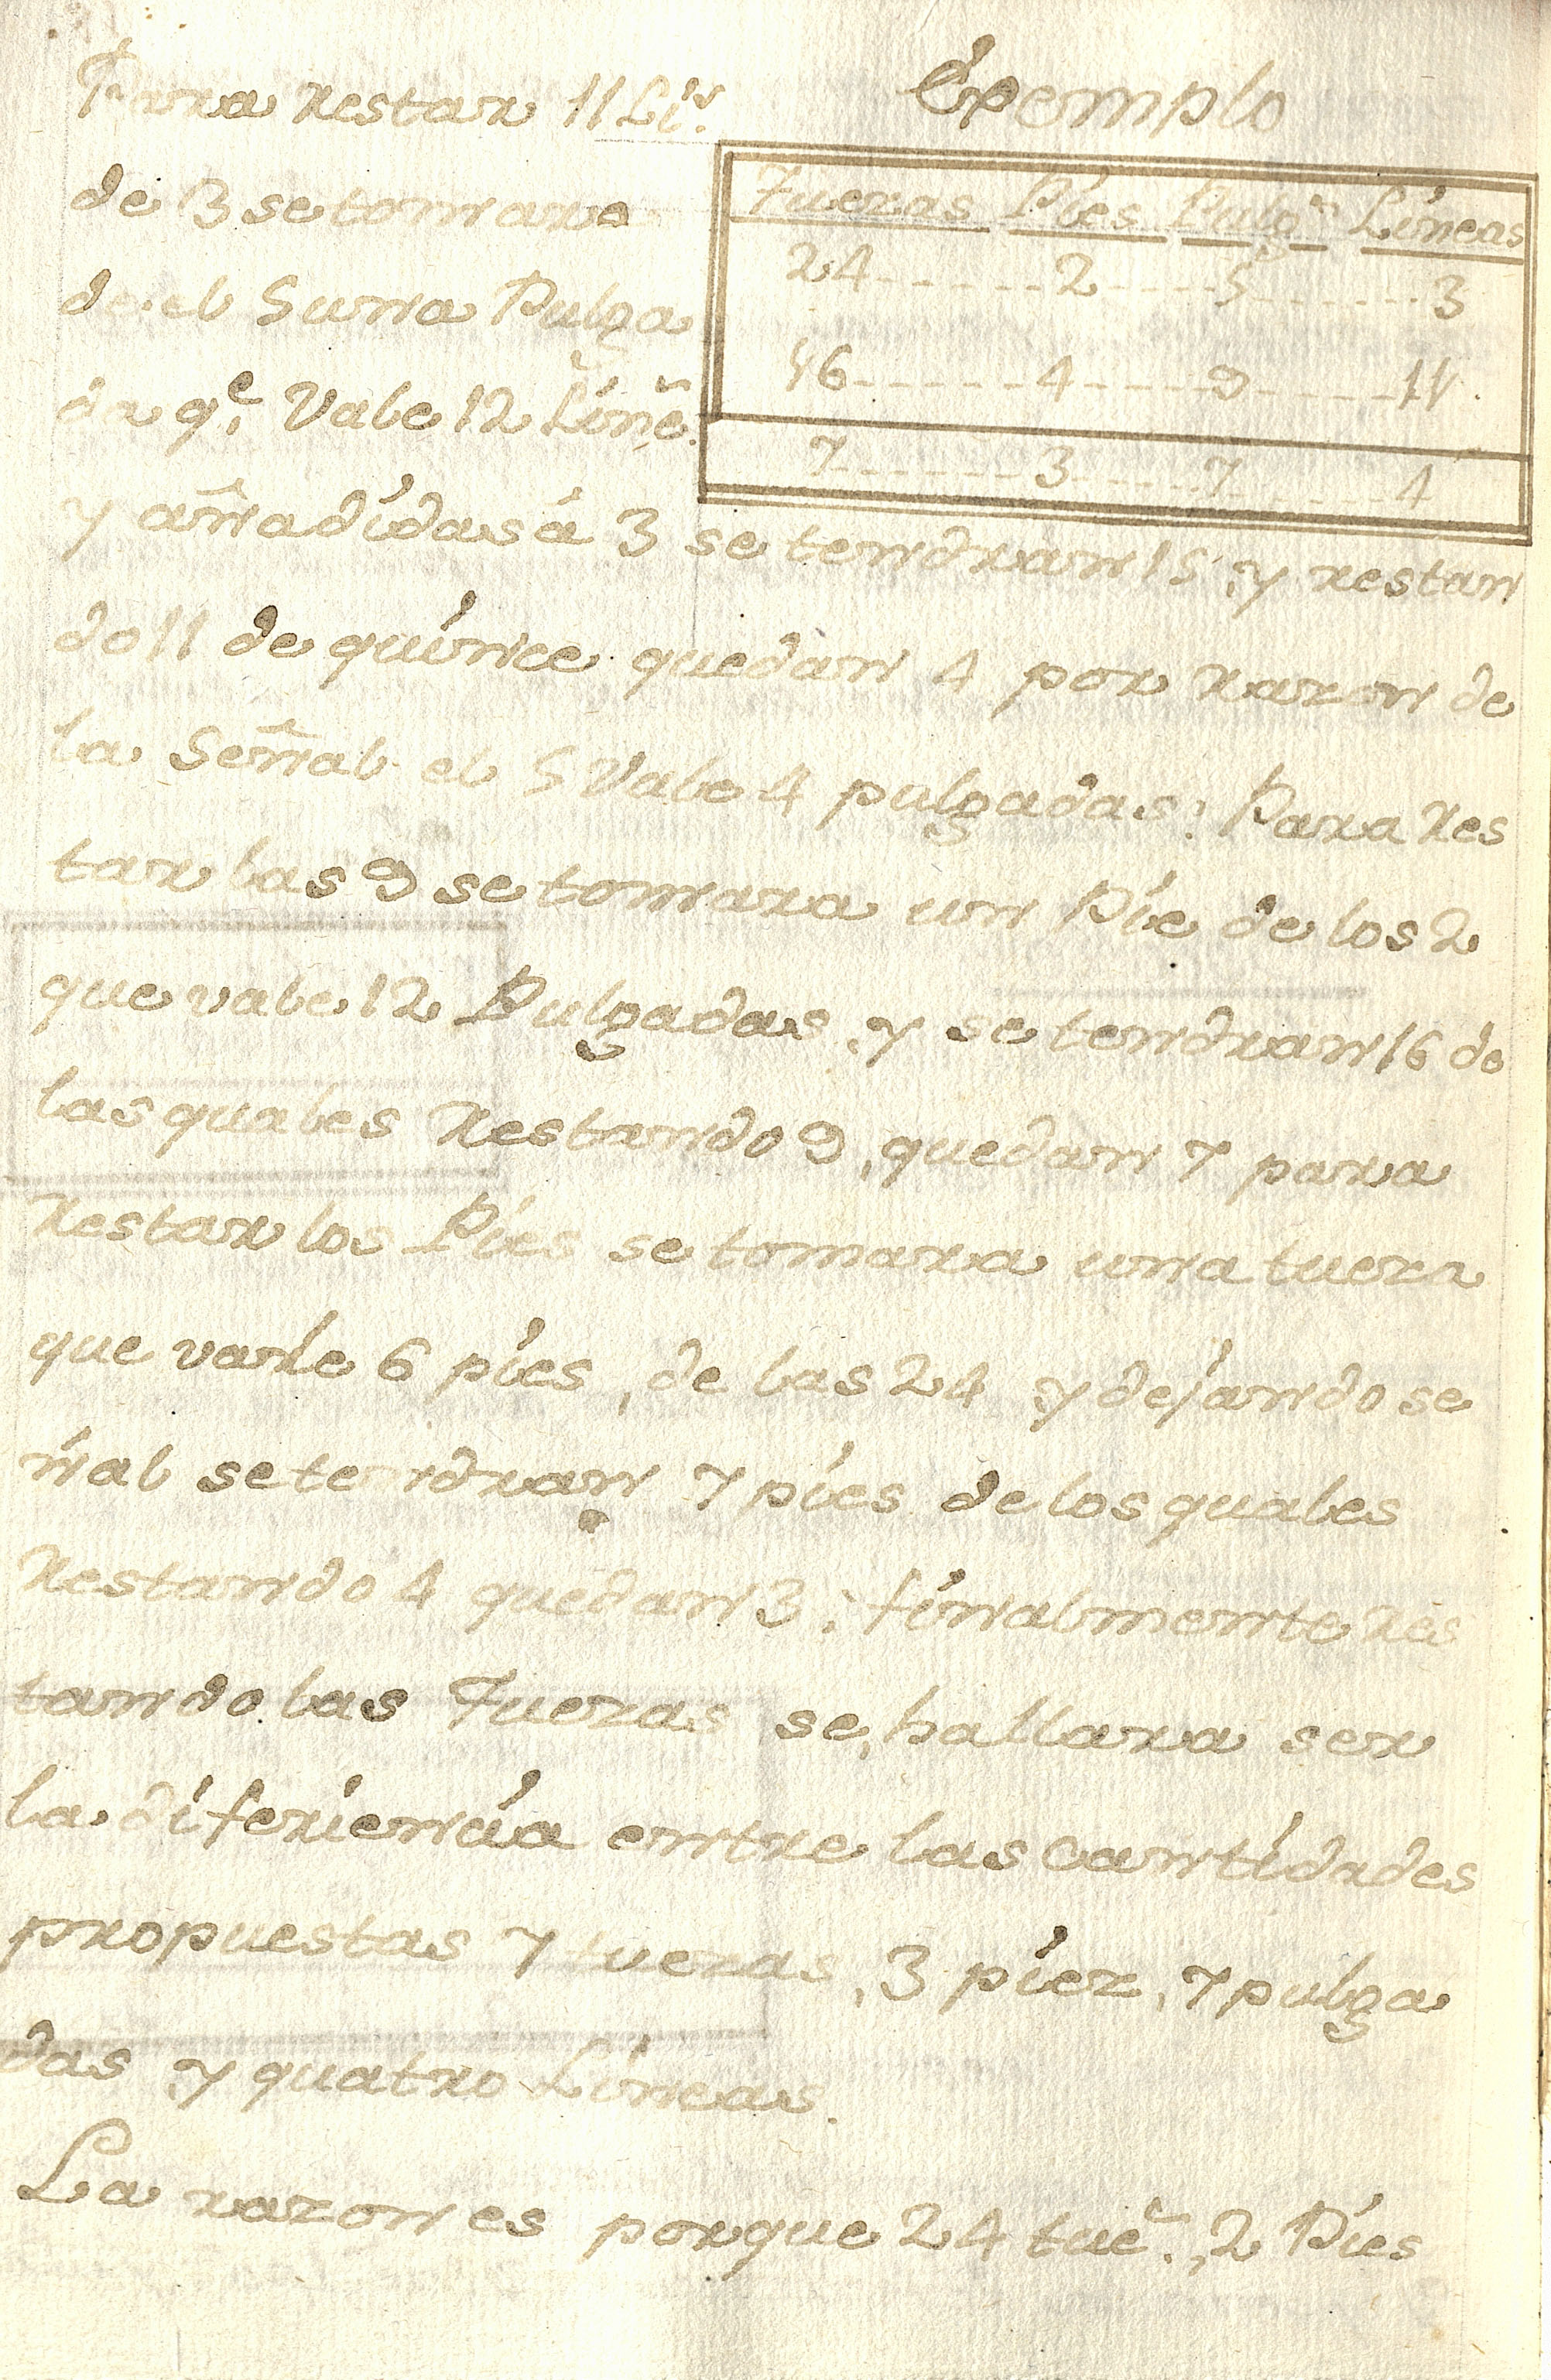 Exemplo
Para restar 11 Li.s
de 3 se tomara
de el 5 una Pulga
da q.e Vale 12 Line.
Tuezas Pies Pulg.s Lineas
24 2 5 3
16 4 9 11
7 3 7 4
y añadidas á 3 se tendran 15, y restan
do 11 de quince quedan 4 por razon de
la Señal el 5 Vale 4 pulgadas: Para Res
tar las 9 se tomara un Pie de los 2
que vale 12 Pulgadas, y se tendran 16 de
las quales Restando 9, quedan 7 para
Restar los Pies se tomara una tueza
que varle 6 pies, de las 24 y dejando se
ñal se tendran 7 pies de los quales
Restando 4 quedan 3; finalmente Res
tando las Tuezas se, hallara ser
la diferiencia entre las cantidades
propuestas 7 tuezas, 3 piez, 7 pulga
das y quatro Lineas.
La razon es porque 24 tue., 2 Pies